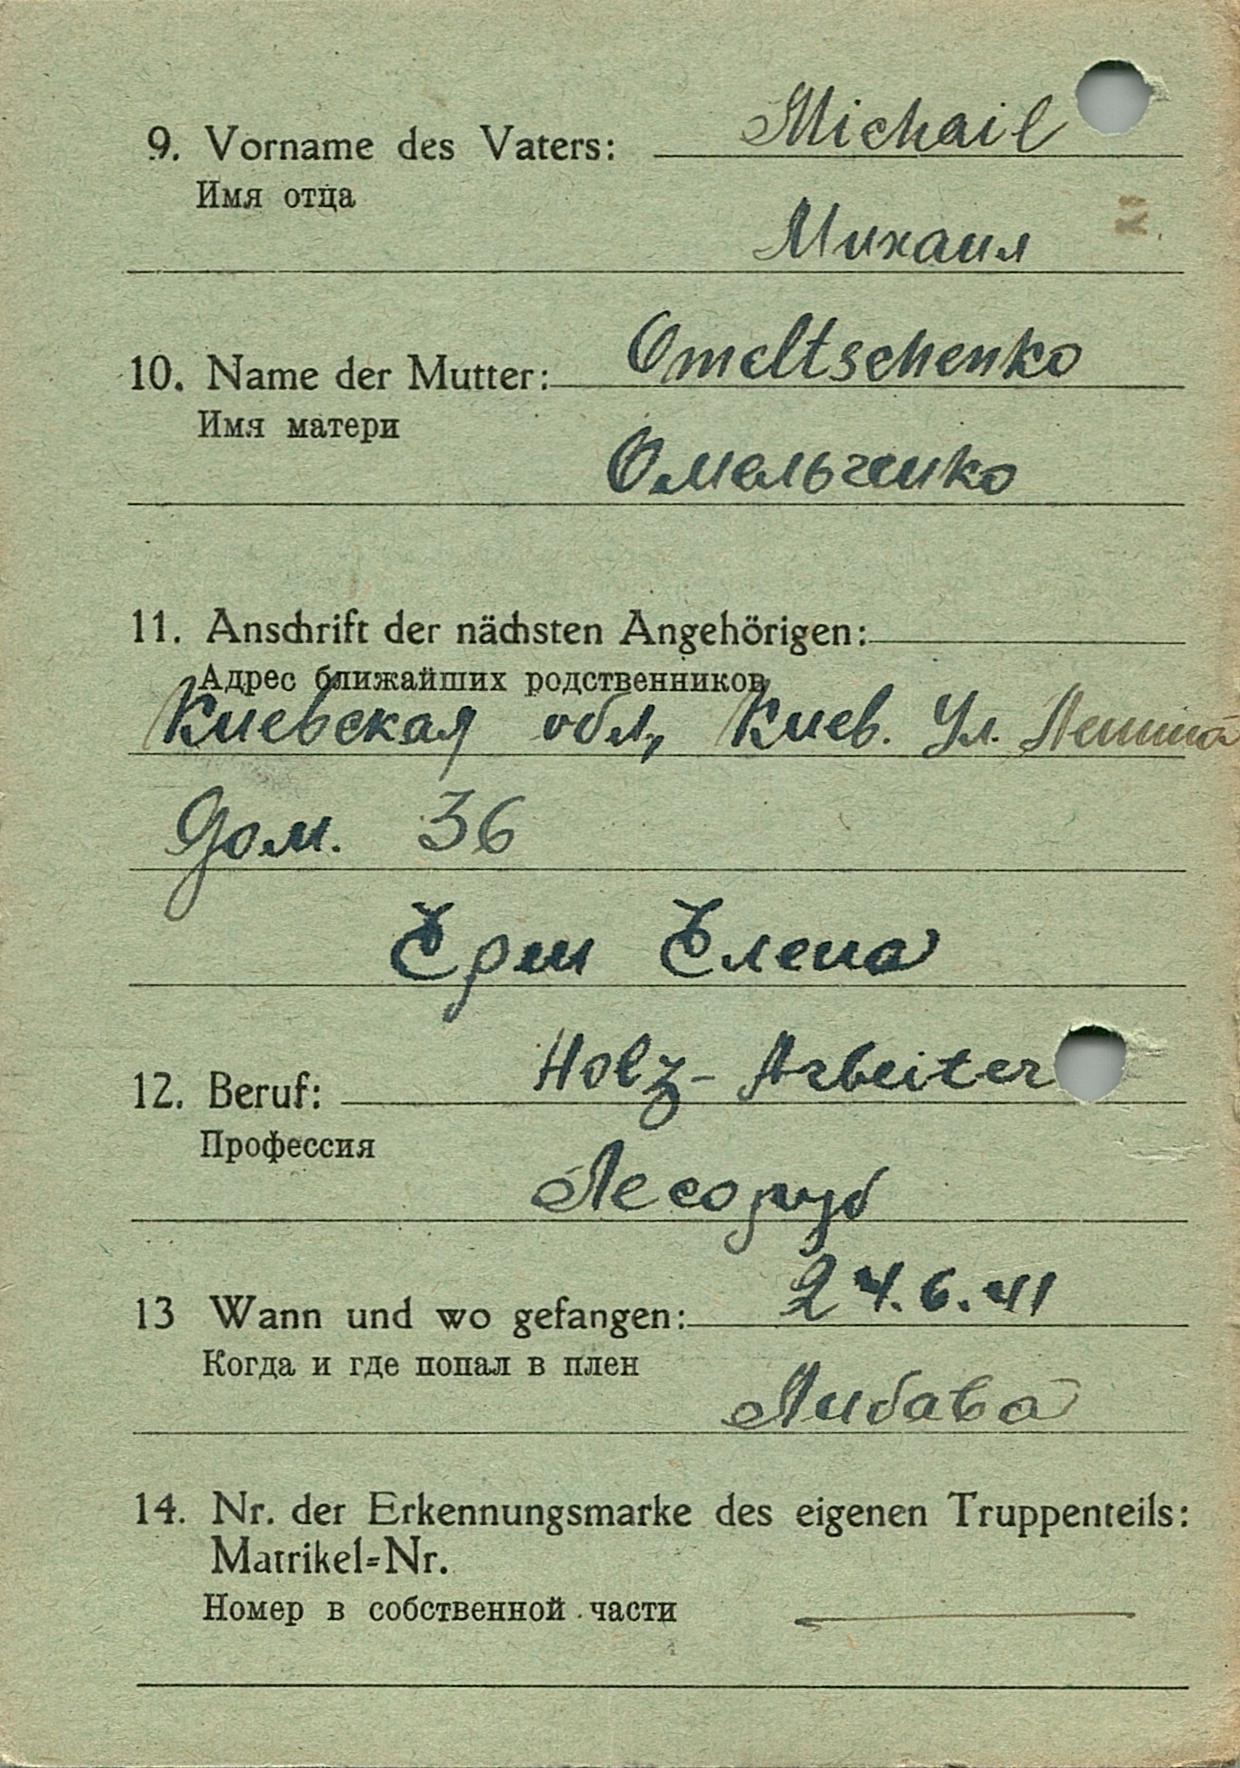 9. Vorname des Vaters: Michail
Имя отца
Михаил
10. Name der Mutter: Omeltschenko
Имя матери
Омельченко
11. Anschrift der nächsten Angehörigen:
Адрес ближайших родственников
Киевская обл, Киев. Ул. Ленина
Дом. 36
Ерш Елена
12. Beruf: Holz-Arbeiter
Профессия
Лесоруб
13 Wann und wo gefangen: 24.6.41
Когда и где попал в плен
Либава
14. Nr. der Erkennungsmarke des eigenen Truppenteils:
Matrikel=Nr.
Номер в собственной части